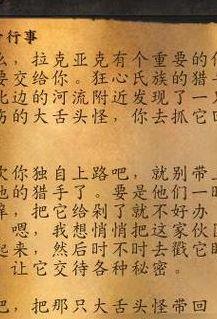 行事
么，拉克亚克有个重要的
要交给你。狂心氏族的猎
北边的河流附近发现了一
伤的大舌头怪，你去抓它回
欢你独自上路吧，就别带上
他的猎手了。要是他们一时
掉，把它给剁了就不好办
嗯，我想悄悄把这家伙
起来，然后时不时去戳它
让它交待各种秘密。
吧，把那只大舌头怪带回